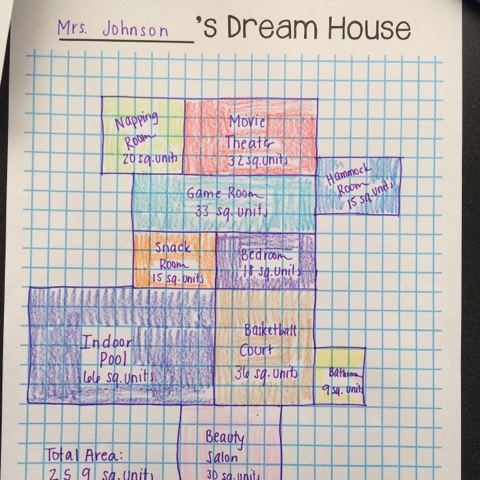 Mrs. Johnson 's Dream House
Napping
Room
20 sq. units
Movie
Theater
32 sq. units
Hammock
Room
15 sq. units
Game Room
33 sq. units
Snack
Room
15 sq. units
Bedroom
18 sq. units
Indoor
Pool
66 sq. units
Basketball
Court
36 sq. units
Bathroom
9 sq. units
Beauty
Salon
30 sq. units
Total Area:
259 sq. units